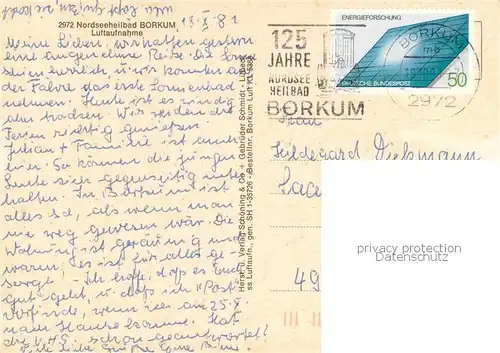 13.X.81
2972 Nordseeheilbad BORKUM
Luftaufnahme
Meine Lieben, wir hatten gestern
eine angenehme Reise. Die Sonne
schien herrlich, u. wir konnten auf
der Fähre das erste Sonnenbad
nehmen. Heute ist es windig
aber trocken. Wir werden die
Ferien richtig genießen
Julian + Familie ist auch
hier. So können die jungen
Leute sich gegenseitig unter-
halten. In Borkum ist
alles so, als wenn man
nie weg gewesen wär. Die
Wohnung ist geräumig und
warm, es ist für alles ge-
sorgt. - Ich hoffe, daß es Euch
gut geht, u. daß ich "Post"
vorfinde, wenn ich am 25.X
nach Hause komme. Hat
die V.H.S. schon geantwortet?
Viele liebe Grüße
Herst. u. Verlag Schöning & Co + Gebrüder Schmidt · Lübeck
ss Luftaufn., gen. SH 1-35726 - Bestellnr. Borkum Luft KL 5887
125
JAHRE
NORDSEE
HEILBAD
BORKUM
ENERGIEFORSCHUNG
DEUTSCHE BUNDESPOST
50
BORKUM
2972
Frau
Hildegard Diekmann
49
privacy protection
Datenschutz